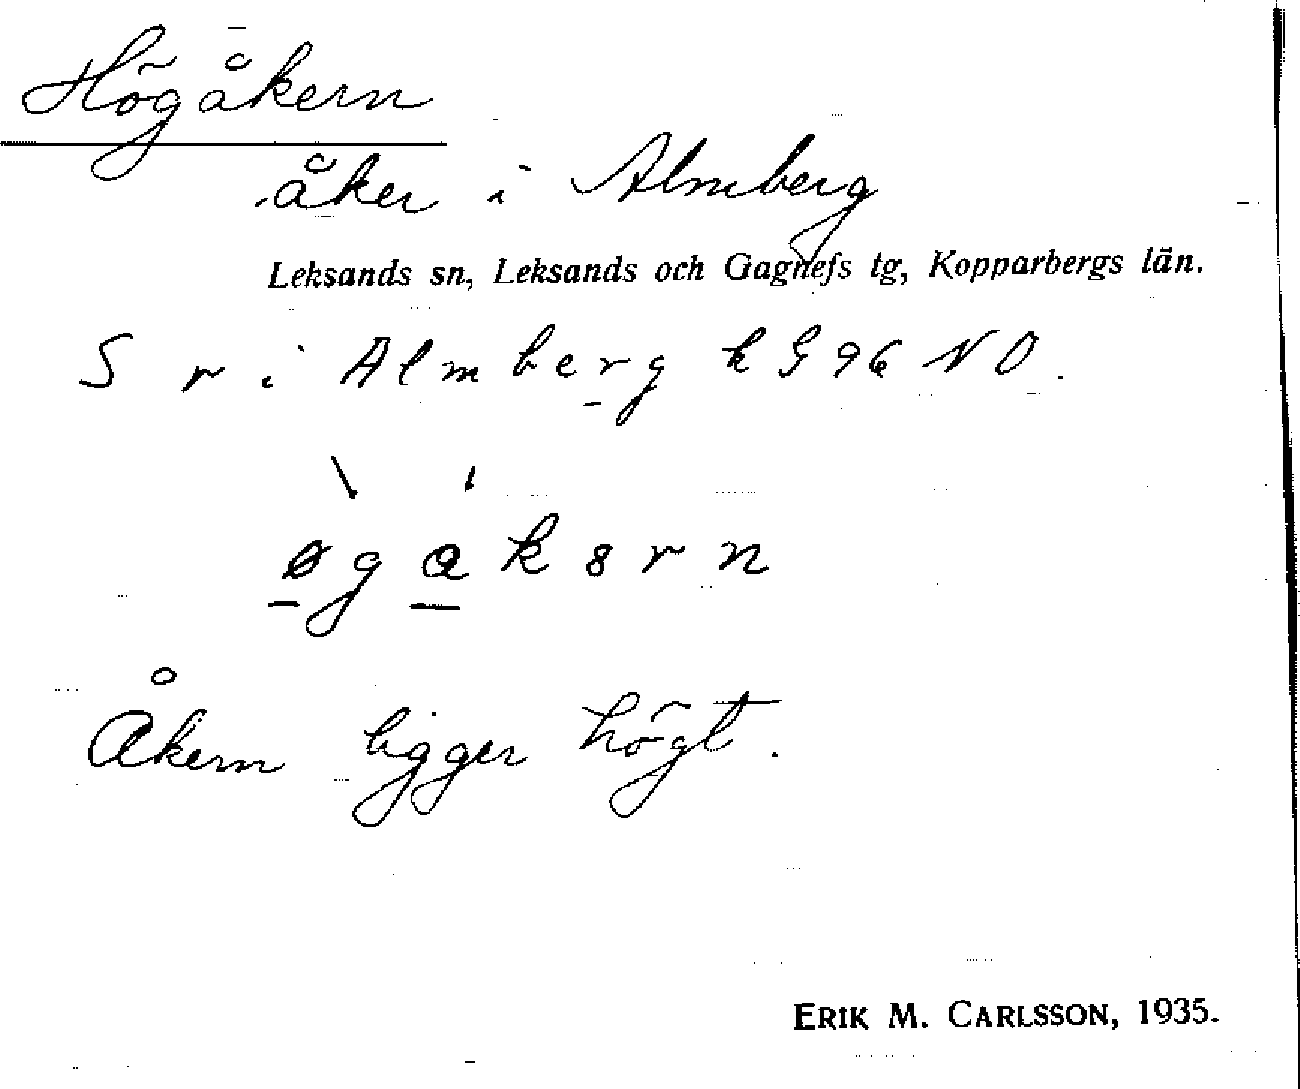 Högåkern
åker i Almberg
Leksands sn, Leksands och Gagnefs tg, Kopparbergs län.
S r i Almberg k G 96 NO.
øgakərn
Åkern ligger högt.
ERIK M. CARLSSON, 1935.